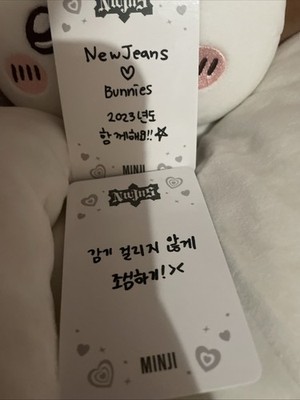 NewJeans
♡
Bunnies
2023년도
함께해요!! ☆
MINJI
NwJns
감기 걸리지 않게
조심하기! ><
MINJI